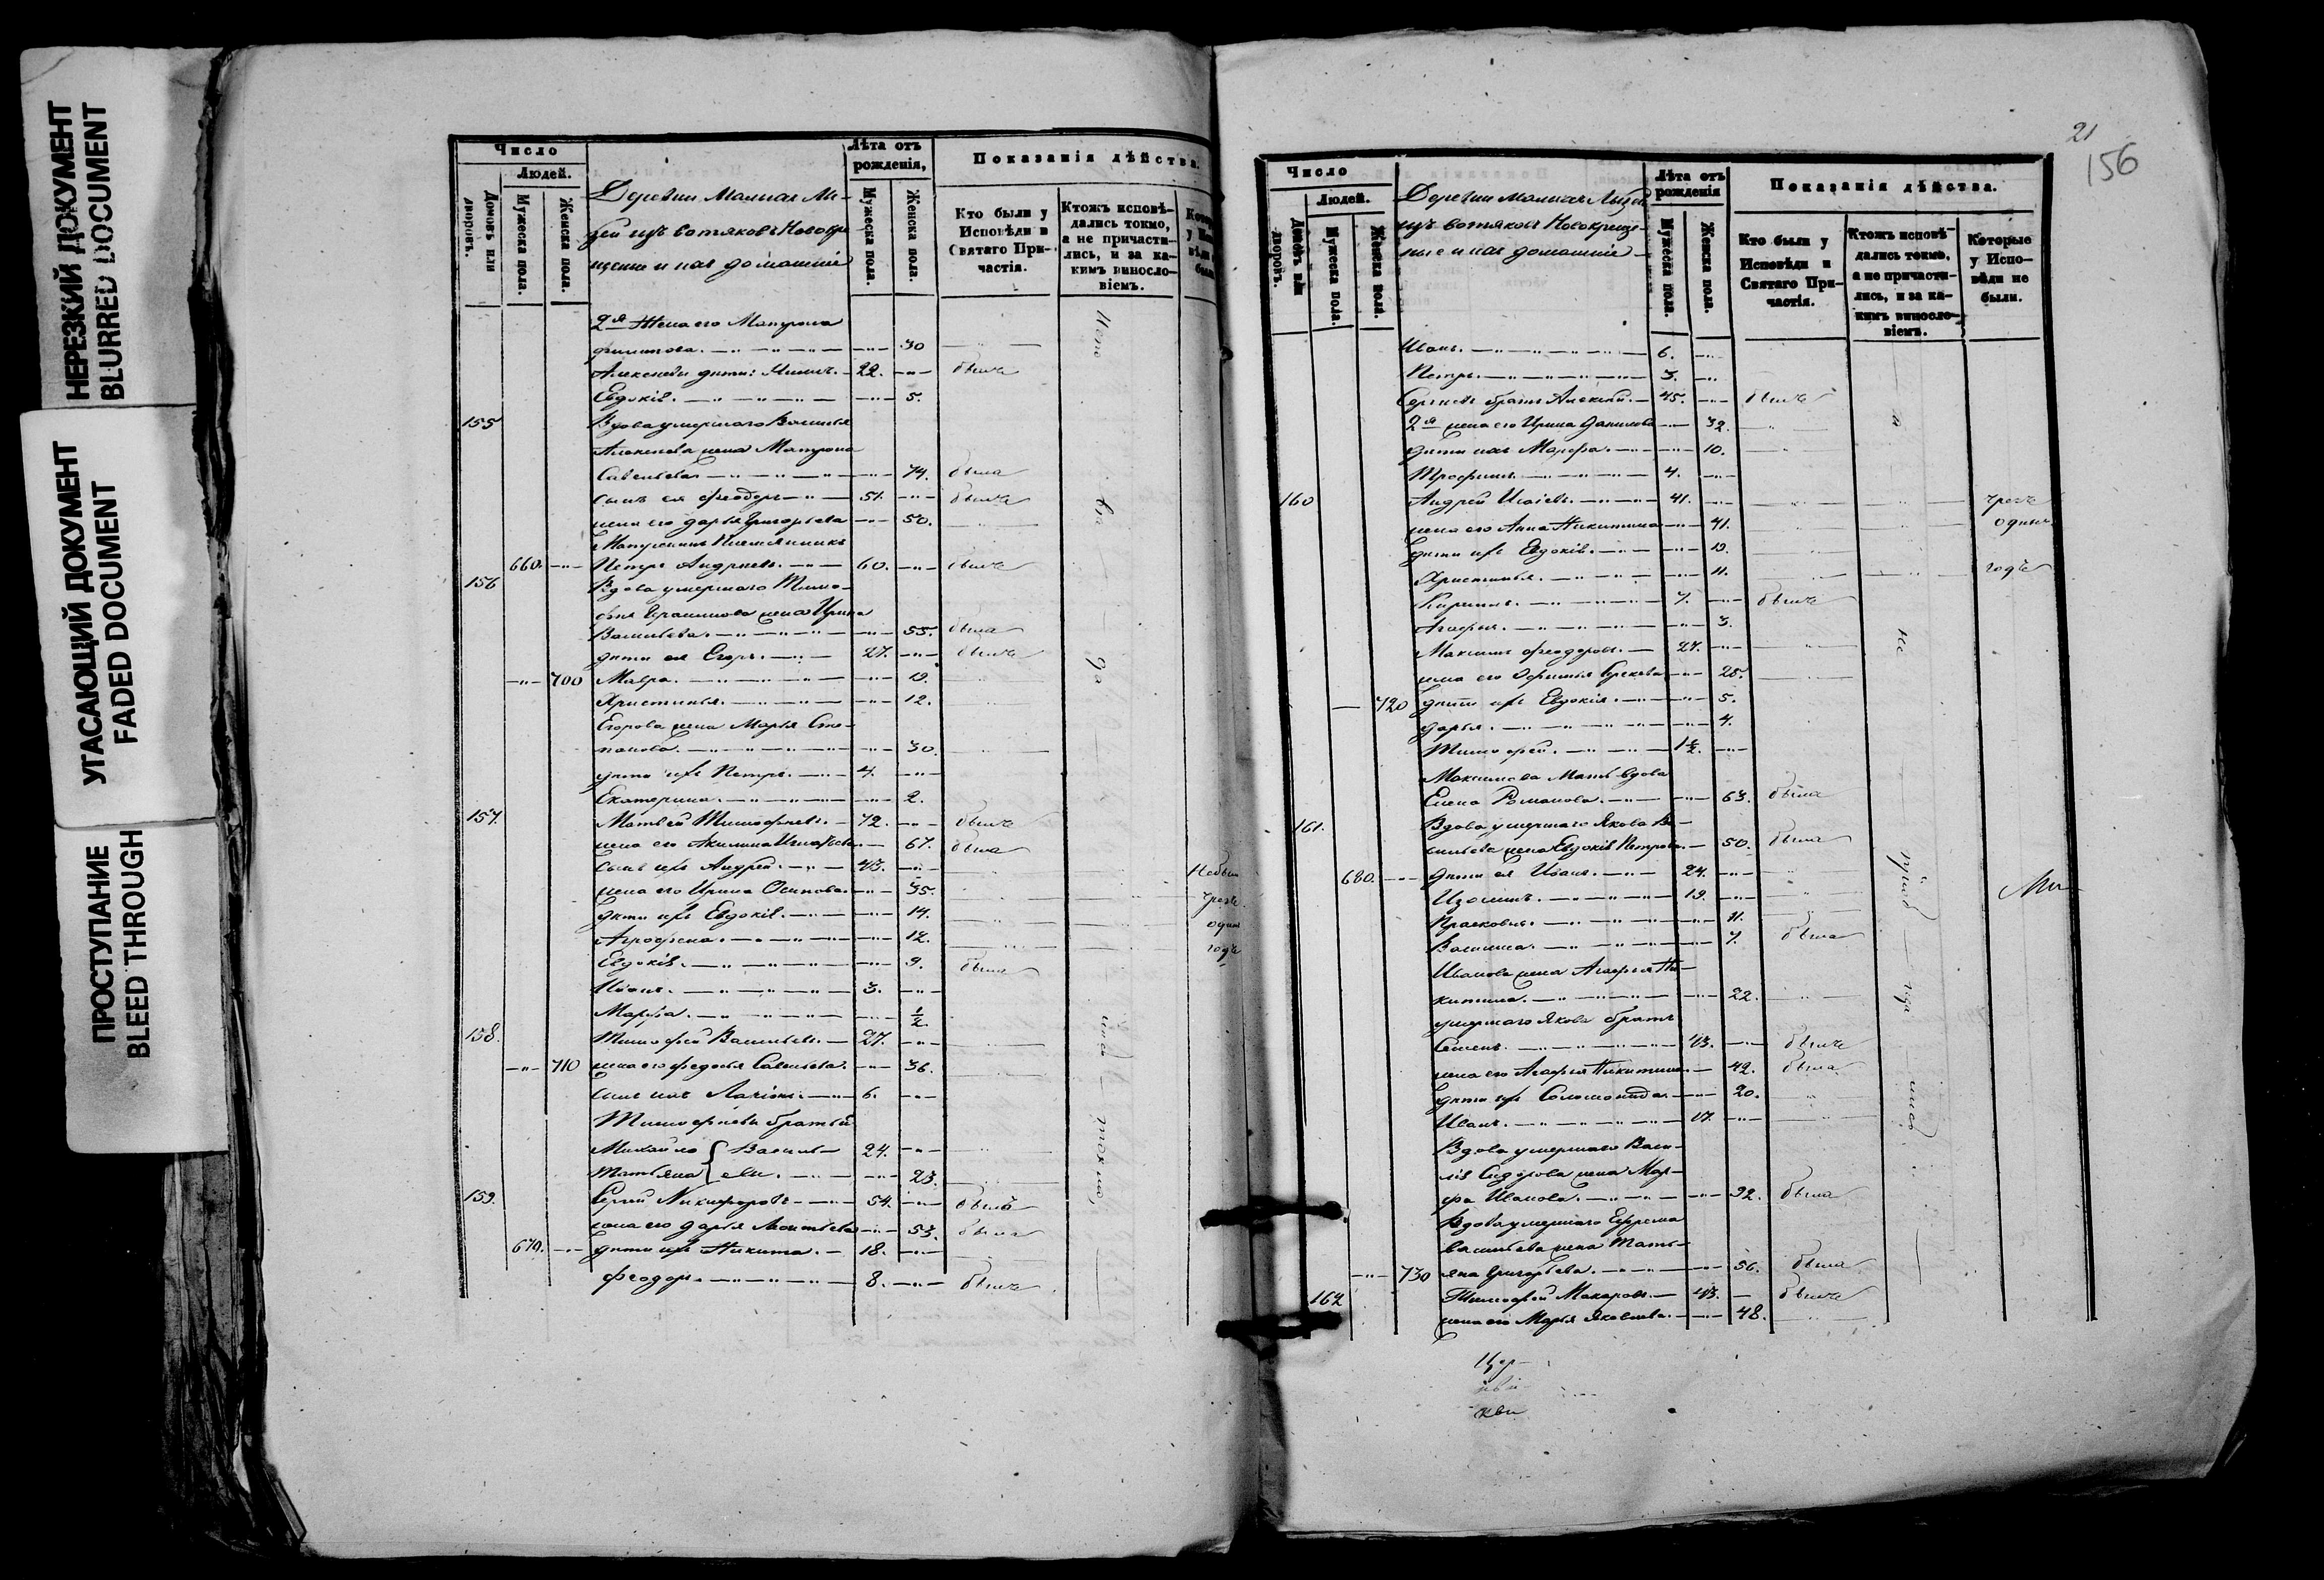 НЕРЕЗКИЙ ДОКУМЕНТ
BLURRED DOCUMENT
УГАСАЮЩИЙ ДОКУМЕНТ
FADED DOCUMENT
ПРОСТУПАНИЕ
BLEED THROUGH
Число
Людей.
Домовъ или дворовъ.
Мужеска пола.
Женска пола.
Деревни Малиах Лы-
зей изъ вотяковъ Новокре
щеные и ихъ домашніе
Лѣта отъ рожденія,
Мужеска пола.
Женска пола.
Показанія дѣйства.
Кто были у Исповѣди и Святаго При-частія.
Ктожъ исповѣ-дались токмо, а не причасти-лись, и за ка-кимъ винносло-віемъ.
2я Жена его Матрона
30
22. былъ
Евдокія. 5.
155 Вдова умершаго Василья
Алексѣева жена Матрона
Савельева 74. была
сынъ ея Феодоръ 51. былъ
жена его Дарья Григорьева 50.
660. Петръ Андреевъ. 60. былъ
156 Вдова умершаго Тимо-
жена Ирина
Васильева. 55. была
дѣти ея Егоръ. 27. былъ
700 Мавра. 19.
Христинья. 12.
Егорова жена Марья Сте-
панова. 30.
дѣти ихъ Петръ. 4.
Екатерина. 2.
157. Матвей Тимофеевъ. 72. былъ
жена его Акилина Игнатьева. 67. была
сынъ ихъ Андрей. 43.
жена его Ирина Осипова. 35.
дѣти ихъ Евдокія. 14.
Агрофена. 12.
Евдокія. 9.
Иванъ. 3.
Марфа. 1/2.
чрезъ
одинъ
годъ
158. Тимофей Васильевъ. 27.
710 жена его Федосья Савельева. 36.
сынъ ихъ 6.
Тимофеевы братья
Михайло Василь- 24.
Татьяна евы. 23.
159. Сергей Никифоровъ 54. былъ
жена его Дарья Леонтьева 53. была
670. дѣти ихъ Никита. 18.
Феодоръ. 8. былъ
21
156
Число
Людей.
Домовъ или дворовъ.
Мужеска пола.
Женска пола.
Деревни Малиах Лызей
изъ вотяковъ Новокреще-
ные и ихъ домашніе
Лѣта отъ рожденія
Мужеска пола.
Женска пола.
Показанія дѣйства.
Кто были у Исповѣди и Святаго При-частія.
Ктожъ исповѣ-дались токмо, а не причасти-лись, и за ка-кимъ винносло-віемъ.
Которые у Испо-вѣди не были.
Иванъ. 6.
Петръ. 3.
Сергеевъ братъ Алексѣй. 45. былъ
2я жена его Ирина Данилова 32.
дѣти ихъ Марфа. 10.
Трофимъ 4.
160 Андрей Исаевъ. 41. чрезъ
жена его Анна Никитина 41. одинъ
дѣти ихъ Евдокія. 19.
Христинья. 11. годъ
Кирилъ. 7. былъ
Агафья. 3.
Максимъ Феодоровъ. 27.
жена его 28.
720 дѣти ихъ Евдокія. 5.
Дарья. 4.
Тимофей. 1 1/2.
Максимова Мать вдова
Елена Романова. 63. была
161. Вдова умершаго Якова Ва-
сильева жена Евдокія Петрова. 50. была
680. дѣти ея Иванъ. 24.
Изосимъ. 19.
Прасковья. 11.
Василиса. 7. была
Иванова жена Агафья Ни-
китина. 22.
умершаго Якова братъ
Семенъ. 43. былъ
жена его Агафья Никитина. 42. была
дѣти ихъ Соломонида. 20.
Иванъ. 17.
Вдова умершаго Васи-
лія Сидорова жена Мар-
фа Иванова. 92. была
Вдова умершаго Ефрема
Васильева жена Тать-
730 яна Григорьева. 56. была
162 Тимофей Макаровъ. 43. былъ
жена его Марья Яковлева. 48.
Цер-